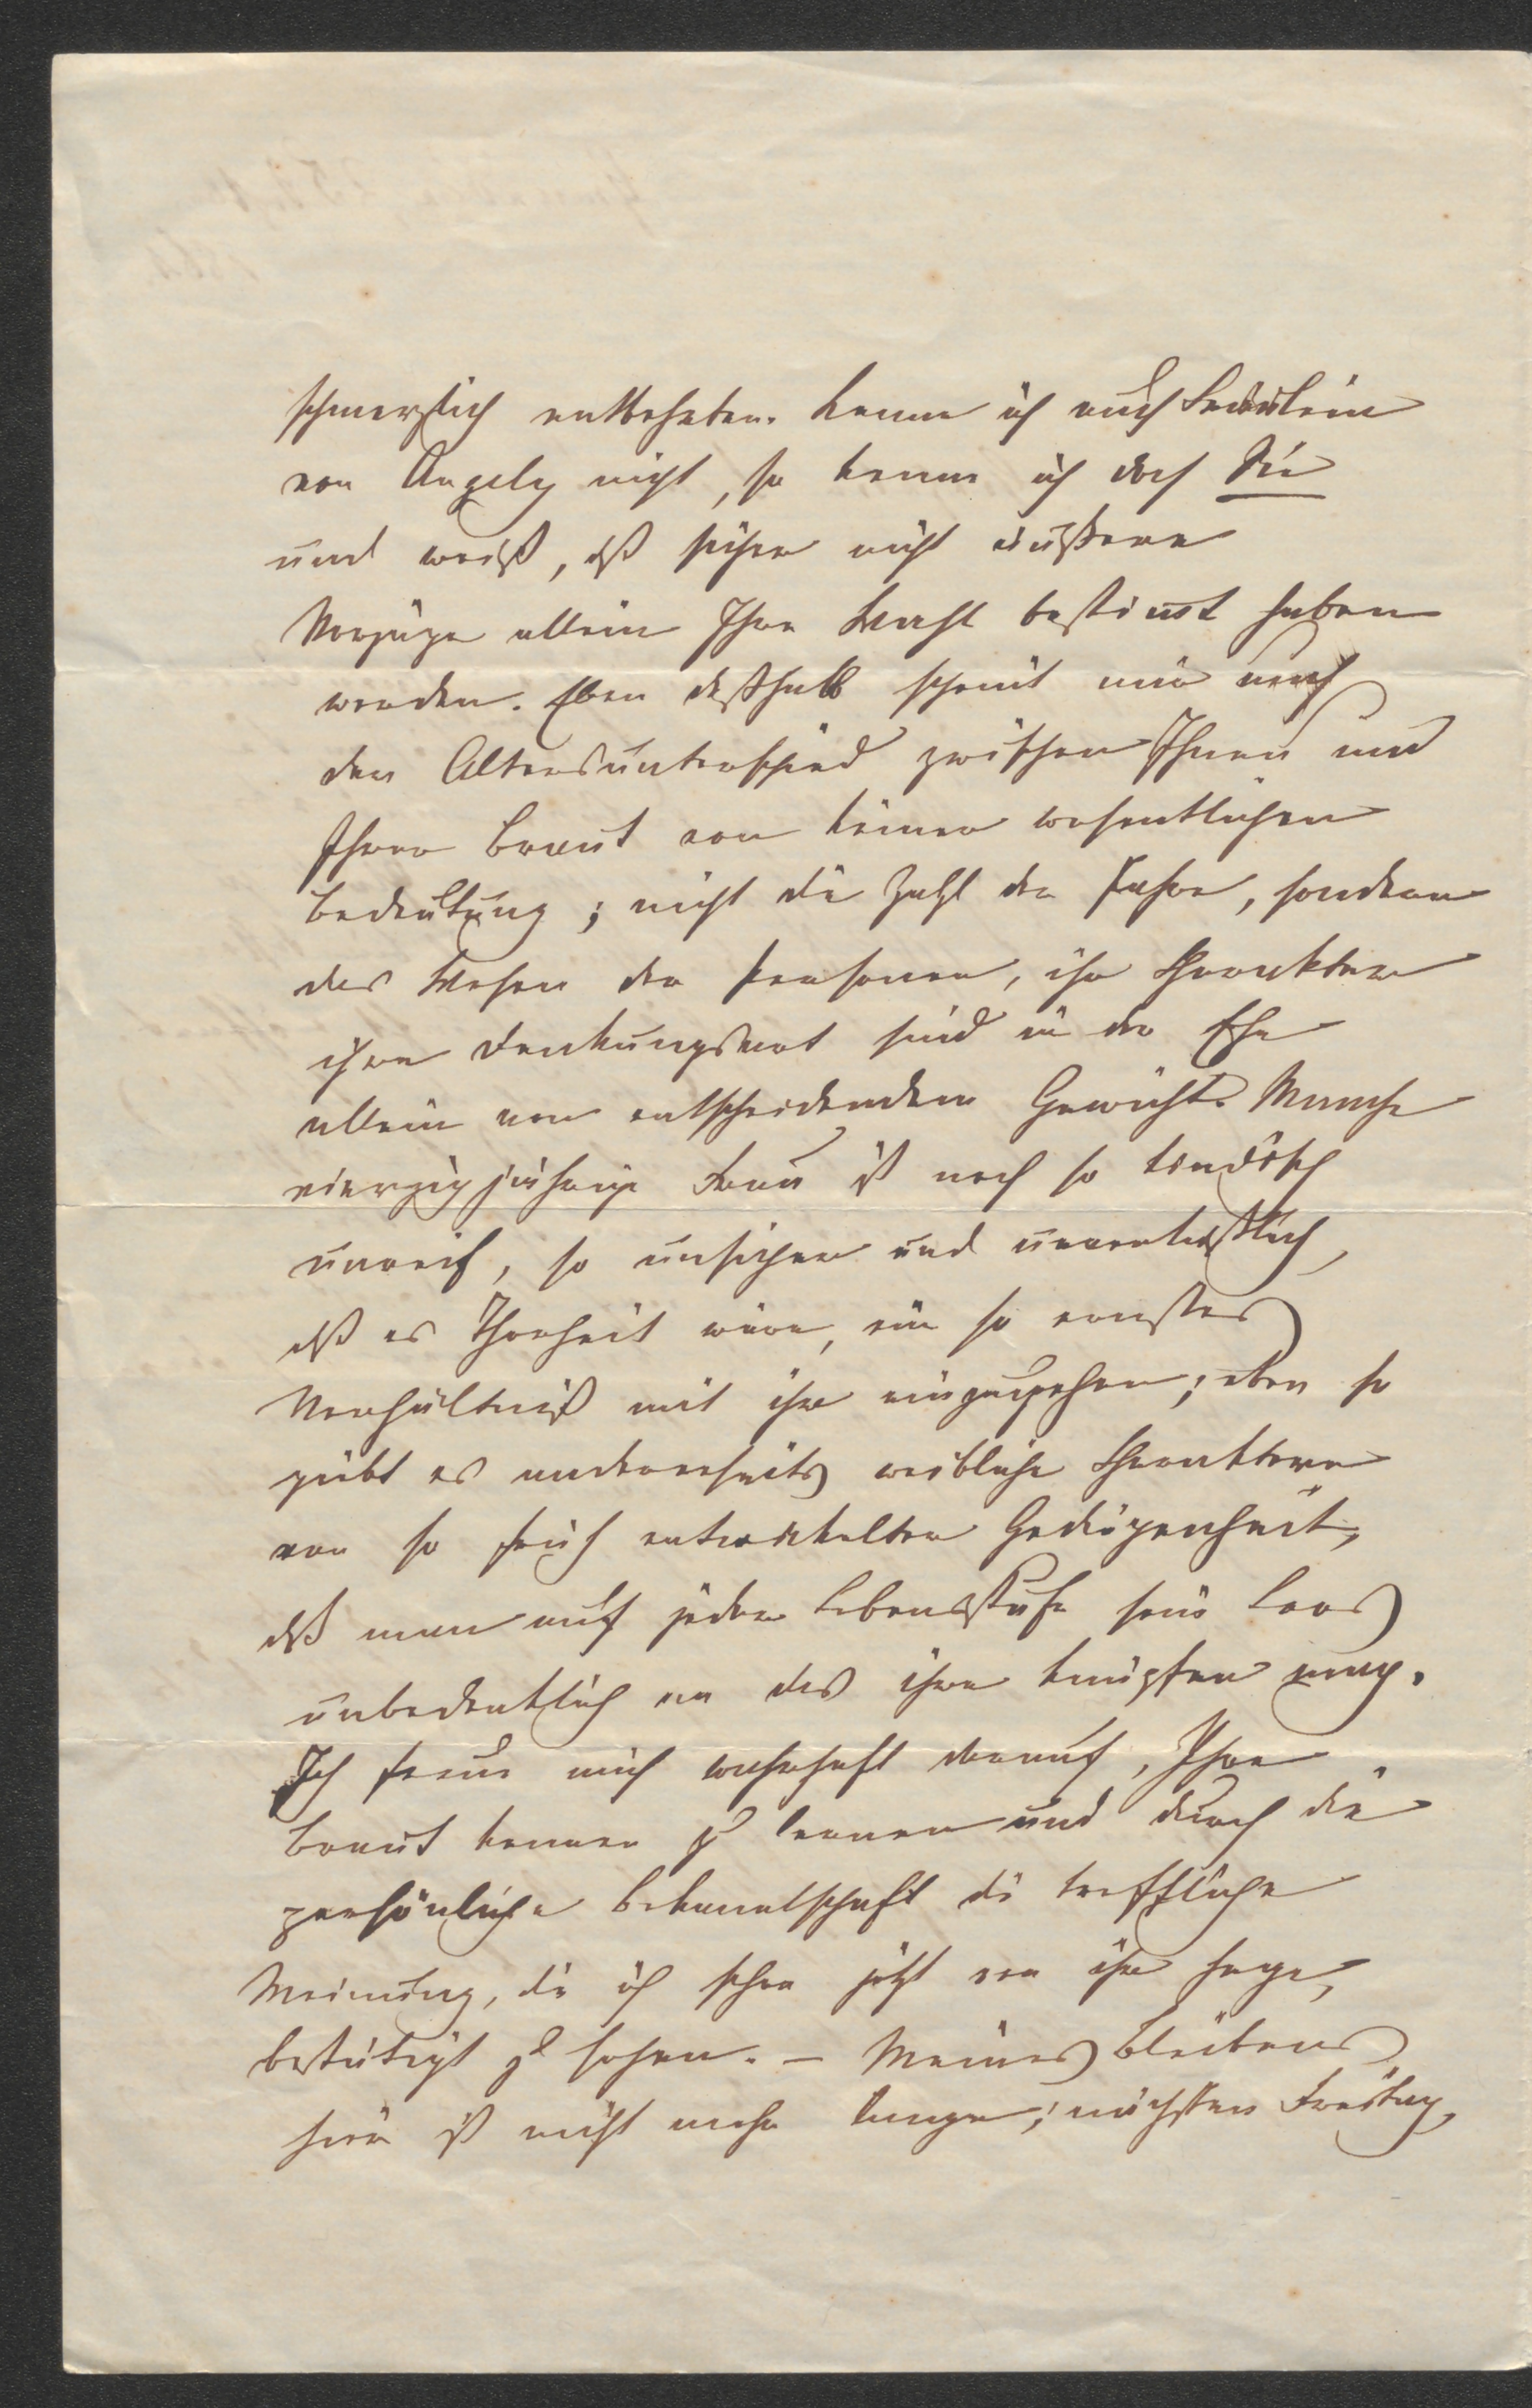 schmerzlich entbehrten. Kenne ich auch Fräulein
von Angely nicht, so kenne ich doch Sie
und weiß, dß sicher nicht äußere
Vorzüge allein Ihre Wahl bestimt haben
werden. Eben deßhalb scheint mir auch
der Altersunterschied zwischen Ihnen und
Ihrer Braut von keiner wesentlichen
Bedeutung; nicht die Zahl der Jahre, sondern
das Wesen der Personen, ihr Charakter
ihre Denkungsart sind in der Ehe
allein von entscheidendem Gewicht. Manche
vierzigjährige Frau ist noch so kindisch
unreif, so unsicher und unverläßlich,
dß es Thorheit wäre, ein so ernstes
Verhältniß mit ihr einzugehen; eben so
giebt es andererseits weibliche Charaktere
von so früh entwickelter Gediegenheit,
dß man auf jeder Lebensstufe sein Loos
unbedenklich an das ihre knüpfen mag.
Ich freue mich wahrhaft darauf, Ihre
Braut kennen zu lernen und durch die
persönliche Bekanntschaft die treffliche
Meinung, die ich schon jetzt von ihr hege,
bestätigt zu sehen. – Meines Bleibens
hier ist nicht mehr lange; nächsten Freitag